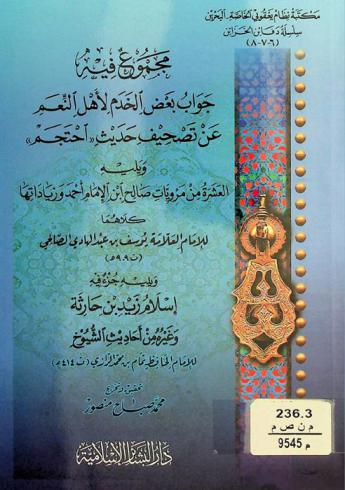 مكتبة نظام يعقوبي الخاصة - البحرين
سلسلة دفائن الخزائن
(٦-٧-٨)
مجموع فيه
جواب بعض الخدم لأهل النعم
عن تصحيف حديث «احتجم»
ويليه
العشرة من مرويات صالح ابن الإمام أحمد وزياداتها
كلاهما
للإمام العلامة يوسف بن عبد الهادي الصالحي
(ت ٩٠٩هـ)
ويليه جزء فيه
إسلام زيد بن حارثة
وغيره من أحاديث الشيوخ
للإمام الحافظ تمام بن محمد الرازي (ت ٤١٤هـ)
تحقيق وتخريج
محمد صباح منصور
236.3
م ن ص م
م 9545
دار البشائر الإسلامية